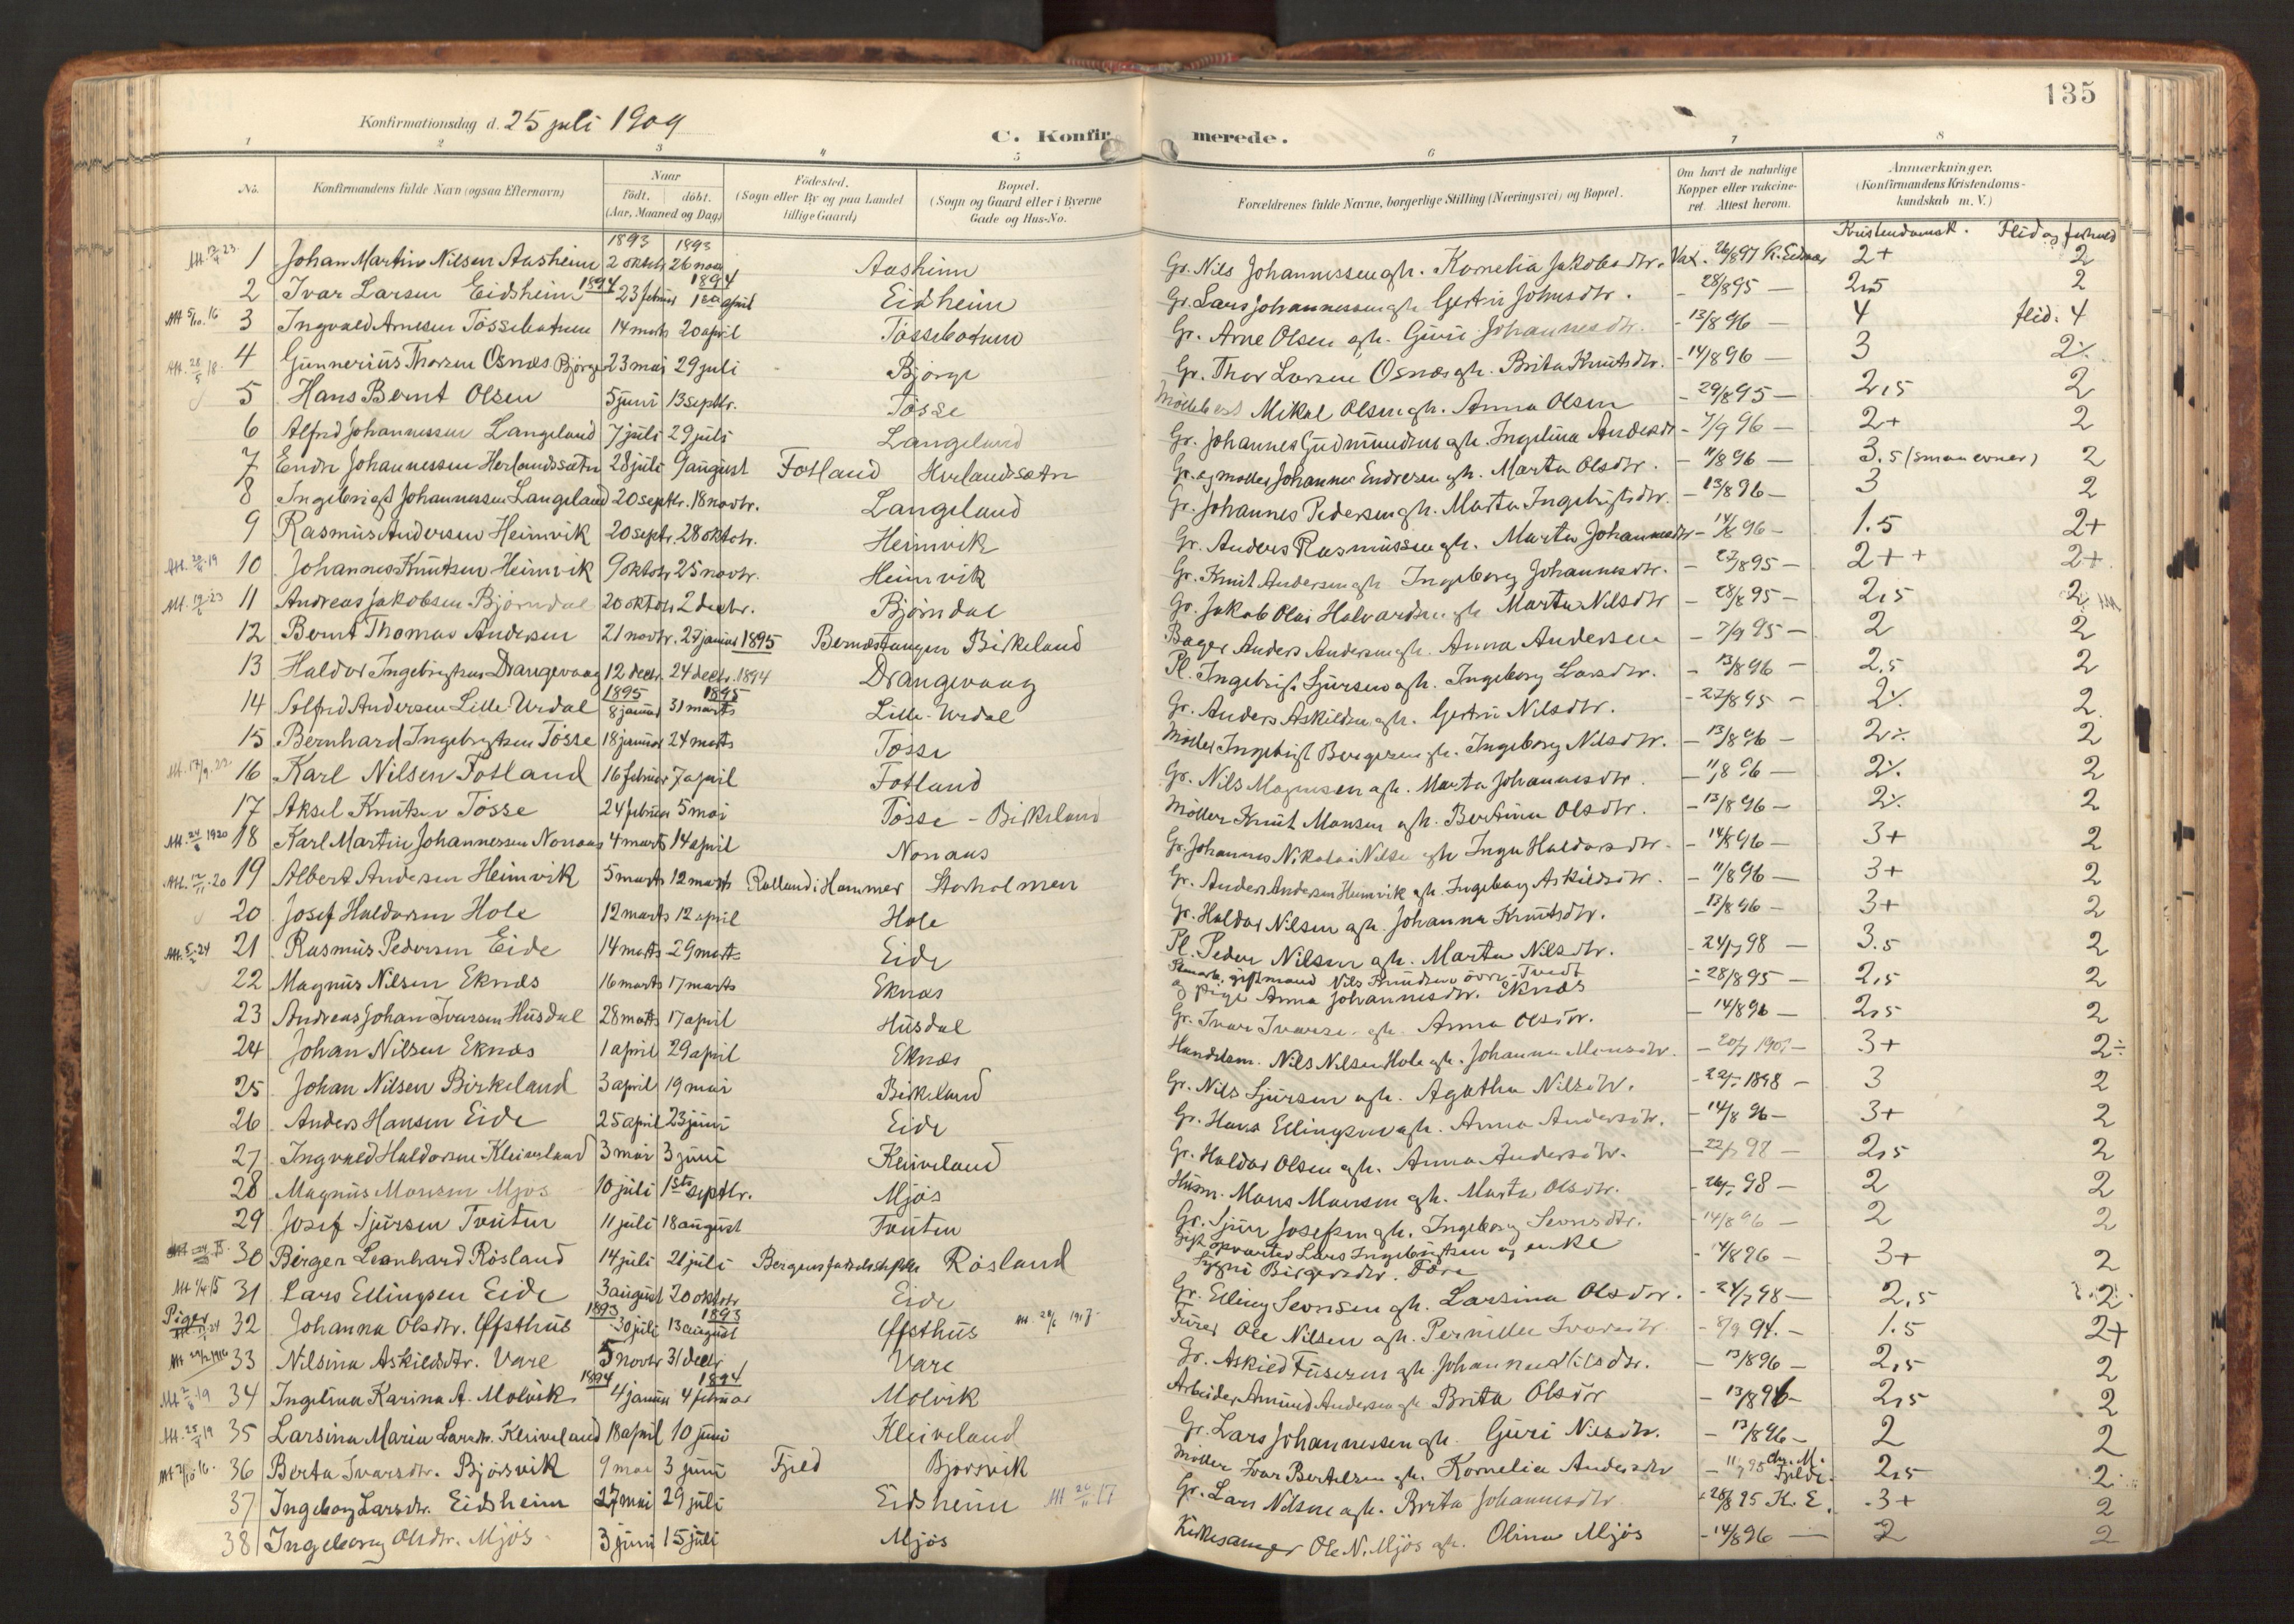 135
Konfirmationsdag d. 25 juli 1909
C. Konfirmerede.
1 2 3 4 5 6 7 8
No.
Konfirmandens fulde Navn (ogsaa Efternavn)
Naar født, døbt. (Aar, Maaned og Dag)
Fødested. (Sogn eller By og paa Landet tillige Gaard)
Bopæl. (Sogn og Gaard eller i Byerne Gade og Hus-No.
Forældrenes fulde Navne, borgerlige Stilling (Næringsvei) og Bopæl.
Om havt de naturlige Kopper eller vakcineret. Attest herom.
Anmærkninger. (Konfirmandens Kristendomskundskab m. V.)
Kristendomsk. Flid og forhold
1893 1893
1 Johan Martin Nilsen Aasheim 2 oktobr 26 novbr Aasheim Gr. Nils Johannessen og h. Kornelia Jakobsdtr. Vax. 26/8 97 2+ 2
1894 1894
2 Ivar Larsen Eidsheim 23 februar 1ste april Eidsheim Gr. Lars Johannessen og h. Gertru Johnsdtr. - 28/8 95 - 2,5 2
3 Ingvald Arnesen Tössebotnen 14 marts 20 april Tössebotnen Gr. Arne Olsen og h. Guri Johannesdtr. - 13/8 96 - 4 flid. 4
4 Gunnerius Thorsen Osnæs Bjørge 23 mai 29 juli Bjørge Gr. Thor Larsen Osnæs og h. Brita Knutsdtr. - 14/8 96 - 3 2%
5 Hans Bernt Olsen 5 juni 13 septbr. Tösse Mikal Olsen og h. Anna Olsen - 29/8 95 - 2,5 2
6 Alfred Johannessen Langeland 7 juli 29 juli Langeland Gr. Johannes Gudmundsen og h. Ingelina Andersdtr - 7/9 96 - 2+ 2
7 Endre Johannessen Herlandssætre 28 juli 9 august Fotland Herlandssætre Gr. og møller Johannes Endresen og h. Marta Olsdtr. - 11/8 96 - 3.5 (smaa evner) 2
8 Ingebrigt Johannessen Langeland 20 septbr. 18 novbr. Langeland Gr. Johannes Pedersen og h. Marta Ingebrigtsdtr. - 13/8 96 - 3 2
9 Rasmus Andersen Heimvik 20 septr. 28 oktobr. Heimvik Gr. Anders Rasmussen og h. Marta Johannesdtr - 14/8 96 - 1.5 2+
10 Johannes Knutsen Heimvik 9 oktobr 25 novbr. Heimvik Gr. Knut Andersen og h. Ingeborg Johannesdtr. - 27/8 95 - 2++ 2+
11 Andreas Jakobsen Bjørndal 20 oktobr 2 decbr. Bjørndal Gr. Jakob Olai Halvardsen og h. Marta Nilsdtr - 28/8 95 - 2,5 2
12 Bernt Thomas Andersen 21 novbr. 27 januar 1895 Bernæstangen Birkeland Bager Anders Andersen og h. Anna Andersen - 7/9 95 - 2 2
13 Haldor Ingebrigtsen Drangevaag 12 decbr. 24 decbr. 1894 Drangevaag Pl. Ingebrigt Sjursen og h. Ingeborg Larsdtr. - 13/8 96 - 2,5 2
1895 1895
14 Alfred Andersen Lille-Urdal 8 januar 31 marts Lille-Urdal Gr. Anders Askildsen og h. Gertru Nilsdtr. - 27/8 95 - 2% 2
15 Bernhard Ingebrigtsen Tösse 18 januar 24 marts Tösse Møller Ingebrigt Bergesen og h. Ingeborg Nilsdtr. - 13/8 96 - 2% 2
16 Karl Nilsen Fotland 16 februar 7 april Fotland Gr. Nils Magnesen og h. Marta Johannesdtr. - 11/8 96 - 2% 2
17 Aksel Knutsen Tösse 24 februar 5 mai Tösse - Birkeland Møller Knut Monsen og h. Bertina Olsdtr. - 13/8 96 - 2% 2
18 Karl Martin Johannessen Nonaas 4 marts 14 april Nonaas Gr. Johannes Nikolai Nilse og h. Inga Haldorsdtr. - 14/8 96 - 3+ 2
19 Albert Andersen Heimvik 5 marts 12 marts Rolland i Hammer Storholmen Gr. Anders Andersen Heimvik og h. Ingeborg Askildsdtr. - 11/8 96 - 3+ 2
20 Josef Haldorsen Hole 12 marts 12 april Hole Gr. Haldor Nilsen og h. Johanna Knutsdtr. - 13/8 96 - 3+ 2
21 Rasmus Pedersen Eide 14 marts 29 marts Eide Pl. Peder Nilsen og h. Marta Nilsdtr. - 24/7 98 - 3.5 2
22 Magnus Nilsen Eknæs 16 marts 17 marts Eknæs giftmand Nils Knudsen övre-Tvedt og pige Anna Johannesdtr. Eknæs - 28/8 95 - 2,5 2
23 Andreas Johan Ivarsen Husdal 28 marts 17 april Husdal Gr. Ivar Ivarse. og h. Anna Olsdtr. - 14/8 96 - 2,5 2
24 Johan Nilsen Eknæs 1 april 29 april Eknæs Handelsm. Nils Nilsen Hole og h. Johanna Monsdtr. 3+ 2÷
25 Johan Nilsen Birkeland 3 april 19 mai Birkeland Gr. Nils Sjursen og h. Agatha Nilsdtr. 1898 - 3 2
26 Anders Hansen Eide 25 april 23 juni Eide Gr. Hans Ellingsen og h. Anna Andersdtr. - 14/8 96 - 3+ 2
27 Ingvald Haldorsen Kleiveland 3 mai 3 juni Kleiveland Gr. Haldor Olsen og h. Anna Andersdtr. - 22/7 98 - 2,5 2
28 Magnus Monsen Mjøs 10 juli 1ste septbr. Mjøs Husm. Mons Monsen og h. Marta Olsdtr. 98 - 2 2
29 Josef Sjursen Tveiten 11 juli 18 august Tveiten Gr. Sjur Josefsen og h. Ingeborg Sevrisdtr. - 14/8 96 - 2 2
30 Birger Leonhard Røsland 14 juli 21 juli Bergens fødselsstiftelse Røsland opvarter Lars Ingebrigtsen og enke Birgersdtr. - 14/8 96 - 3+ 2
31 Lars Ellingsen Eide 3 august 20 oktobr Eide Gr. Elling Sevrisen og h. Larsina Olsdtr. - 24/7 98 - 2,5 2
Piger 1893 1893
32 Johanna Olsdtr. Ofsthus 30 juli 13 august Ofsthus Ole Nilsen og h. Pernille Ivarsdtr. - 8/9 94. - 1.5 2+
33 Nilsina Askildsdtr. Vare 5 novbr 31 decbr Vare Gr. Askild Fusesen og h. Johanna Nilsdtr. - 13/8 96 - 2,5 2
1894 1894
34 Ingelina Karina A. Molvik 4 januar 4 februar Molvik Arbeider Amund Andersen og h. Brita Olsdtr - 13/8 96 - 2,5 2
35 Larsina Maria Larsdtr. Kleiveland 18 april 10 juni Kleiveland Gr. Lars Johannessen og h. Guri Nilsdtr. - 13/8 96 - 2 2
36 Berta Ivarsdtr. Bjørsvik 9 mai 3 juni Fjeld Bjørsvik Møller Ivar Bertelsen og h. Kornelia Andersdtr 2,5 2
37 Ingeborg Larsdtr. Eidsheim 27 mai 29 juli Eidsheim Gr. Lars Nilsen og h. Brita Johannesdtr. 28/8 95 K. E. 3+ 2
38 Ingeborg Olsdtr. Mjøs 3 juni 15 juli Mjøs Kirkesanger Ole N. Mjøs og h. Olina Mjøs - 14/8 96 - 2 2